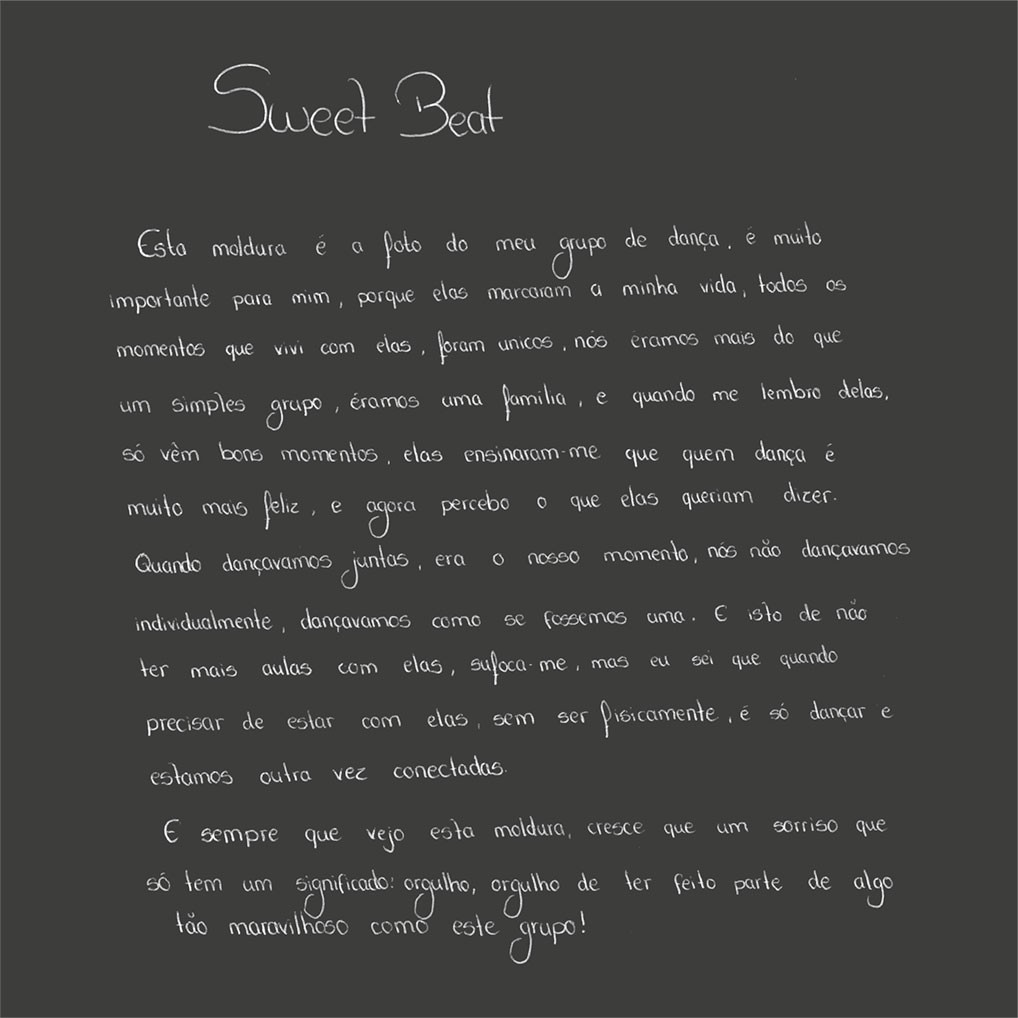 Sweet Beat
Esta moldura é a foto do meu grupo de dança, é muito
importante para mim, porque elas marcaram a minha vida, todos os
momentos que vivi com elas, foram unicos, nós éramos mais do que
um simples grupo, éramos uma família, e quando me lembro delas,
só vêm bons momentos, elas ensinaram-me que quem dança é
muito mais feliz, e agora percebo o que elas queriam dizer.
Quando dançavamos juntas, era o nosso momento, nós não dançavamos
individualmente, dançavamos como se fossemos uma. E isto de não
ter mais aulas com elas, sufoca-me, mas eu sei que quando
precisar de estar com elas, sem ser fisicamente, é só dançar e
estamos outra vez conectadas.
E sempre que vejo esta moldura, cresce que um sorriso que
só tem um significado: orgulho, orgulho de ter feito parte de algo
tão maravilhoso como este grupo!